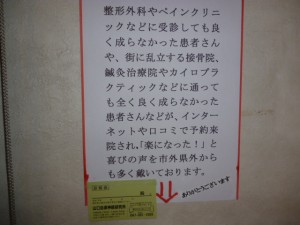 整形外科やペインクリニ
ックなどに受診しても良
く成らなかった患者さん
や、街に乱立する接骨院、
鍼灸治療院やカイロプラ
クティックなどに通って
も全く良く成らなかった
患者さんなどが、インター
ネットや口コミで予約来
院され、「楽になった！」と
喜びの声を市外県外から
も多く戴いております。
ありがとうございます